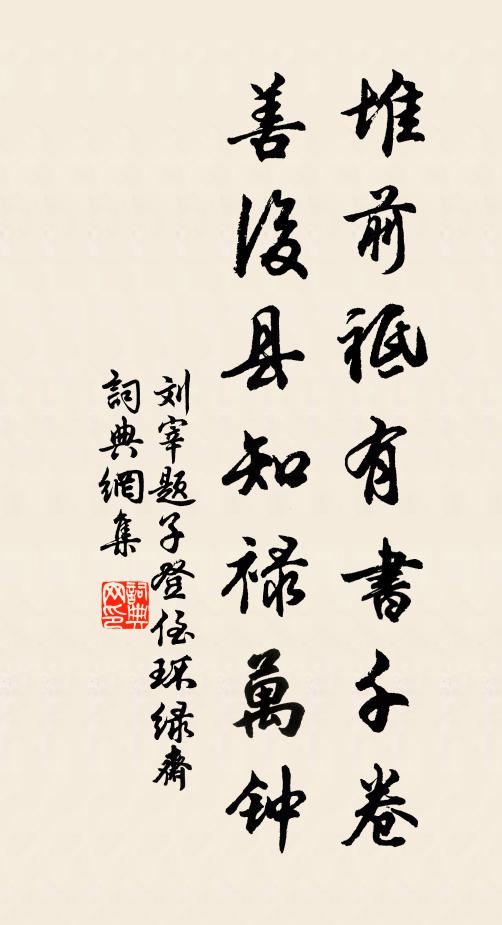 堆前祗有書千卷
善後县知禄萬钟
刘宰题子登侄环绿斋
詞典網集
詞典网印